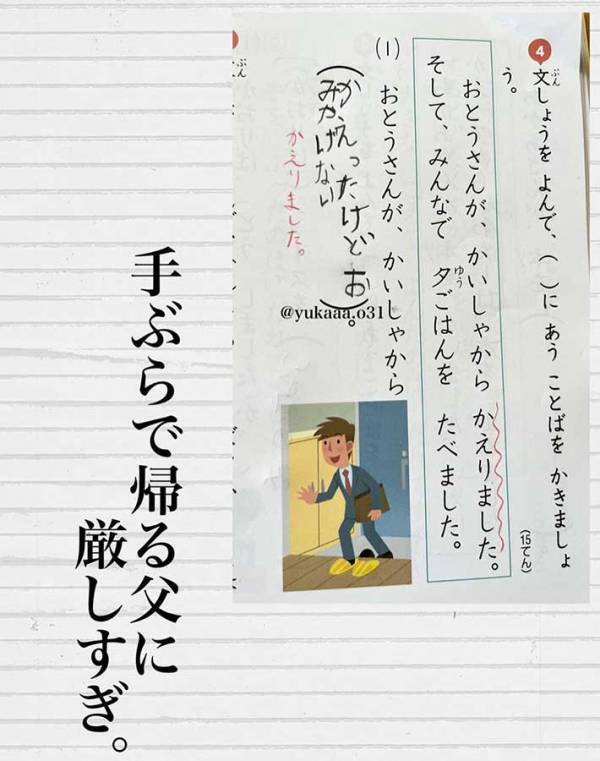 4 文しょうを よんで、( )に あう ことばを かきましょ
ぶん
う。
(15てん)
おとうさんが、かいしゃから かえりました。
そして、みんなで 夕ごはんを たべました。
ゆう
(1) おとうさんが、かいしゃから
(かえったけど お
みやげない)。
かえりました。
@yukaaa.o31
手ぶらで帰る父に
厳しすぎ。